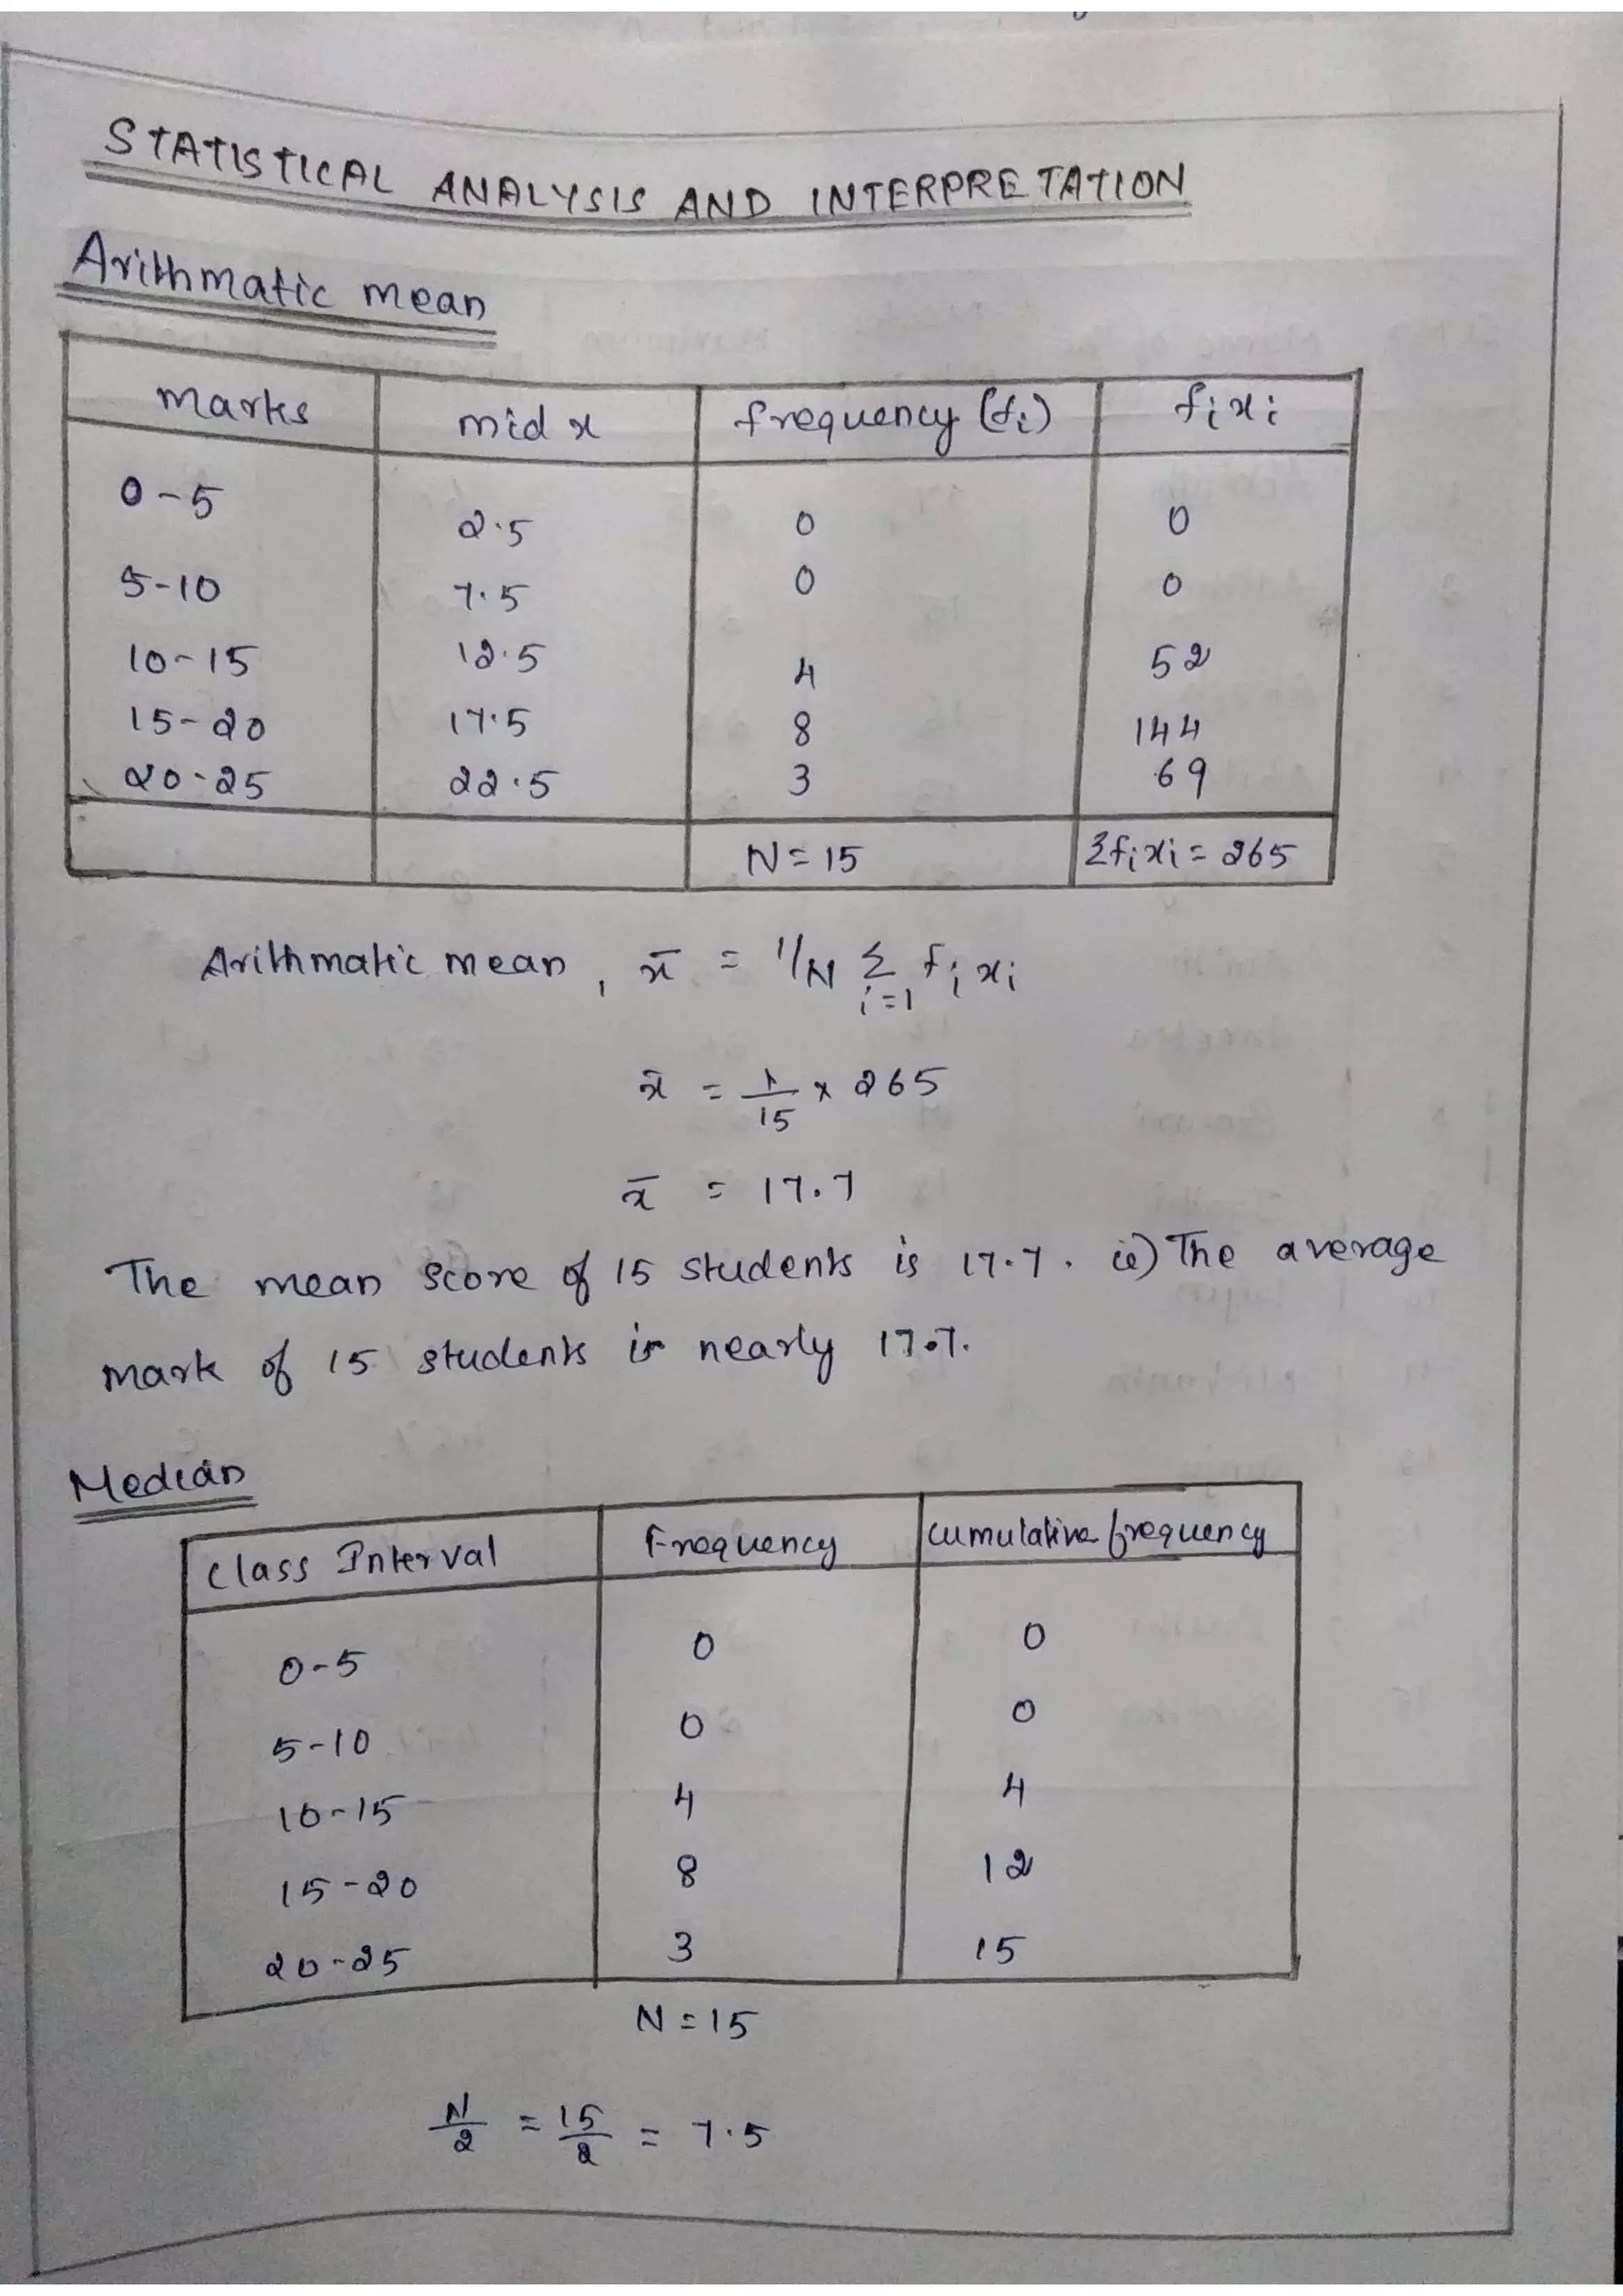 STATISTICAL ANALYSIS AND INTERPRETATION
Arithmatic mean
marks mid x frequency (fi) fixi
0-5 2.5 0 0
5-10 7.5 0 0
10-15 12.5 4 52
15-20 17.5 8 144
20-25 22.5 3 69
N = 15 Σfixi = 265
Arithmatic mean, x̄ = 1/N Σ fi xi
i=1
x̄ = 1/15 × 265
x̄ = 17.7
The mean score of 15 students is 17.7. ie) The average
mark of 15 students is nearly 17.7.
Median
class Interval Frequency cumulative frequency
0-5 0 0
5-10 0 0
10-15 4 4
15-20 8 12
20-25 3 15
N = 15
N/2 = 15/2 = 7.5